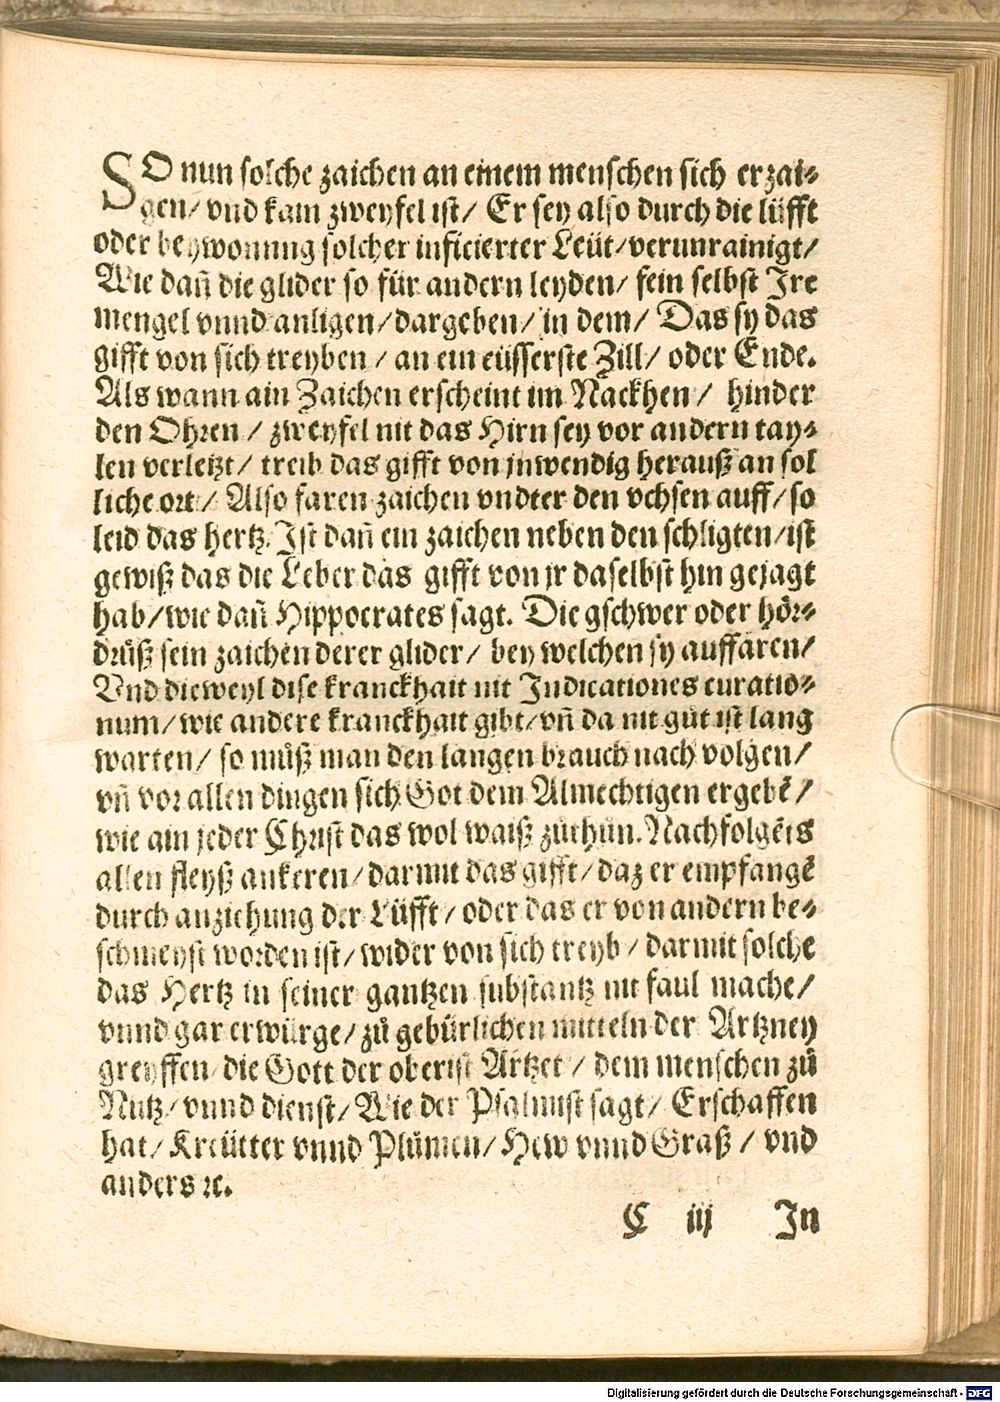 SO nun solche zaichen an einem menschen sich erzai⸗
gen/ vnd kain zweyfel ist/ Er sey also durch die lüfft
oder beywonung solcher inficierter Leüt/ verunrainigt/
Wie dañ die glider so für andern leyden/ fein selbst Ire
mengel vnnd anligen/ dargeben/ in dem/ Das sy das
gifft von sich treyben/ an ein eüsserste Zill/ oder Ende.
Als wann ain Zaichen erscheint im Nackhen/ hinder
den Ohren/ zweyfel nit das Hirn sey vor andern tay⸗
len verletzt/ treib das gifft von jnwendig herauß an sol
liche ort/ Also faren zaichen vndter den vchsen auff/ so
leid das hertz. Ist dañ ein zaichen neben den schligten/ ist
gewiß das die Leber das gifft von jr daselbst hin gejagt
hab/ wie dañ Hippocrates sagt. Die gschwer oder hör⸗
drüß sein zaichen derer glider/ bey welchen sy auffaren/
Vnd dieweyl dise kranckhait nit Indicationes curatio⸗
num/ wie andere kranckhait gibt/ vñ da nit gůt ist lang
warten/ so můß man den langen brauch nach volgen/
vñ vor allen dingen sich Got dem Almechtigen ergebē/
wie ain jeder Christ das wol waiß zůthůn. Nachfolgēts
allen fleyß ankeren/ darmit das gifft/ daz er empfangē
durch anziehung der Lüfft/ oder das er von andern be⸗
schmeyst worden ist/ wider von sich treyb/ darmit solche
das Hertz in seiner gantzen substantz nit faul mache/
vnnd gar erwürge/ zů gebürlichen mitteln der Artzney
greyffen/ die Gott der oberist Artzet/ dem menschen zů
Nutz/ vnnd dienst/ Wie der Psalmist sagt/ Erschaffen
hat/ Kreütter vnnd Plůmen/ Hew vnnd Graß/ vnd
anders ꝛc.
C iij In
Digitalisierung gefördert durch die Deutsche Forschungsgemeinschaft - DFG